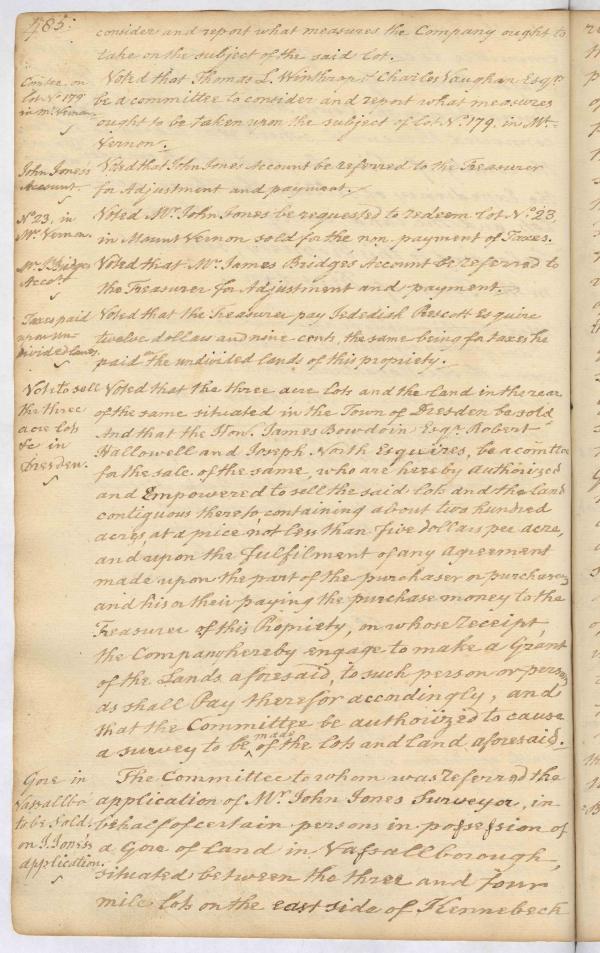 485.
consider and report what measures the Company ought to
take on the subject of the said lot.
Comtee. on
lot No. 179
in Mt. Vernon
Voted that Thomas L. Winthrop & Charles Vaughan Esqrs.
be a committee to consider and report what measures
ought to be taken upon the subject of lot No. 179, in Mt.
Vernon.
John Jones's
Account.
Voted that John Jones' Account be referred to the Treasurer
for Adjustment and payment.
No. 23, in
Mt. Vernon.
Voted Mr. John Jones be requested to redeem lot No. 23,
in Mount Vernon sold for the non payment of Taxes.
Mr. J. Bridge's
Accot.
Voted that Mr. James Bridge's Account be referred to
the Treasurer for Adjustment and payment.
Taxes paid
upon un-
divided lands.
Voted that the Treasurer pay Jedediah Prescott Esquire
twelve dollars and nine cents, the same being for taxes he
paid on the undivided lands of this propriety.
Vote to sell
the three
acre lots
&c in
Dresden.
Voted that the three acre lots and the land in the rear
of the same situated in the Town of Dresden be sold
And that the Hon. James Bowdoin Esqr. Robert
Hallowell and Joseph North Esquires, be a comtee
for the sale of the same, who are hereby authorized
and Empowered to sell the said lots and the land
contiguous thereto, containing about two hundred
acres, at a price not less than five dollars per acre,
and upon the fulfilment of any agreement
made upon the part of the purchaser or purchasers
and his or their paying the purchase money to the
Treasurer of this Propriety, on whose receipt,
the Company hereby engage to make a Grant
of the Lands aforesaid, to such person or persons
as shall Pay therefor accordingly, and
that the Committee be authorized to cause
a survey to be made of the lots and land aforesaid.
Gore in
Vassallbo'
to be Sold.
on J. Jones's
application.
The Committee to whom was referred the
application of Mr. John Jones Surveyor, in
behalf of certain persons in possession of
a Gore of Land in Vassallborough,
situated between the three and four
mile lots on the east side of Kennebeck